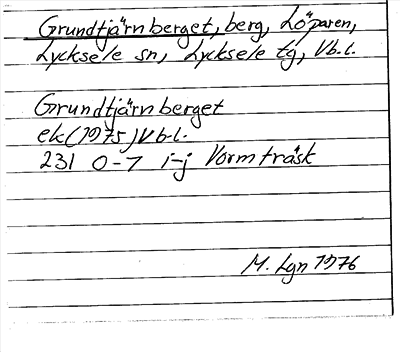 Grundtjärnberget, berg, Löparen,
Lycksele sn, Lycksele tg, Vb.l.
Grundtjärnberget
ek (1975) Vb.l.
231 0-7 i-j Vormträsk
M. Lgn 1976